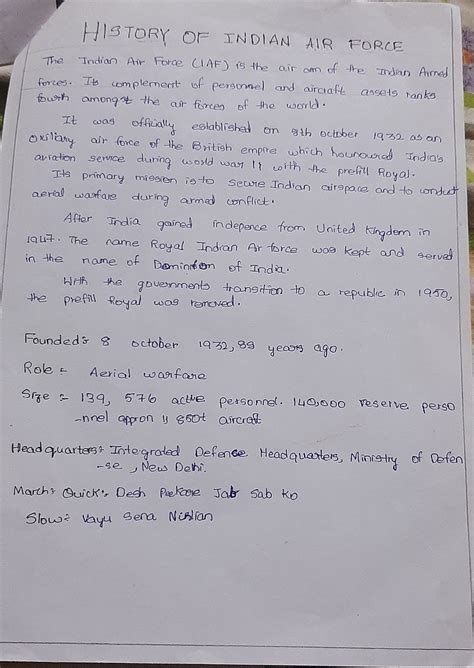 HISTORY OF INDIAN AIR FORCE
The Indian Air Force (IAF) is the air arm of the Indian Armed
forces. Its complement of personnel and aircraft assets ranks
fourth amongst the air forces of the world.
It was officially established on 8th october 1932 as an
auxiliary air force of the British empire which hounoured India's
aviation service during world war 11 with the prefill Royal.
Its primary mission is to secure Indian airspace and to conduct
aerial warfare during armed conflict.
After India gained indepence from United Kingdom in
1947. The name Royal Indian Air force was kept and served
in the name of Dominion of India.
With the governments transition to a republic in 1950,
the prefill Royal was removed.
Founded:- 8 october 1932, 89 years ago.
Role :- Aerial warfare
Size :- 139, 576 active personnel. 140,000 reserve perso
-nnel appron 11 850t aircraft
Headquarters:- Integrated Defence Headquarters, Ministry of Defen
-se, New Delhi.
March:- Quick:- Desh Jab Sab Ko
Slow:- Vayu Sena